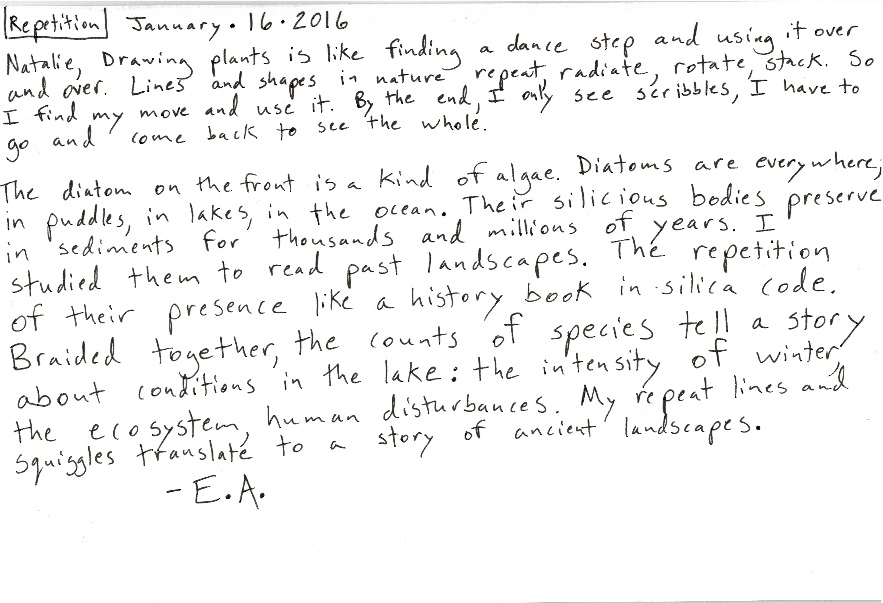 Repetition January · 16 · 2016
Natalie, Drawing plants is like finding a dance step and using it over
and over. Lines and shapes in nature repeat, radiate, rotate, stack. So
I find my move and use it. By the end, I only see scribbles, I have to
go and come back to see the whole.
The diatom on the front is a kind of algae. Diatoms are everywhere,
in puddles, in lakes, in the ocean. Their silicious bodies preserve
in sediments for thousands and millions of years. I
studied them to read past landscapes. The repetition
of their presence like a history book in silica code.
Braided together, the counts of species tell a story
about conditions in the lake: the intensity of winter,
the ecosystem, human disturbances. My repeat lines and
squiggles translate to a story of ancient landscapes.
- E.A.